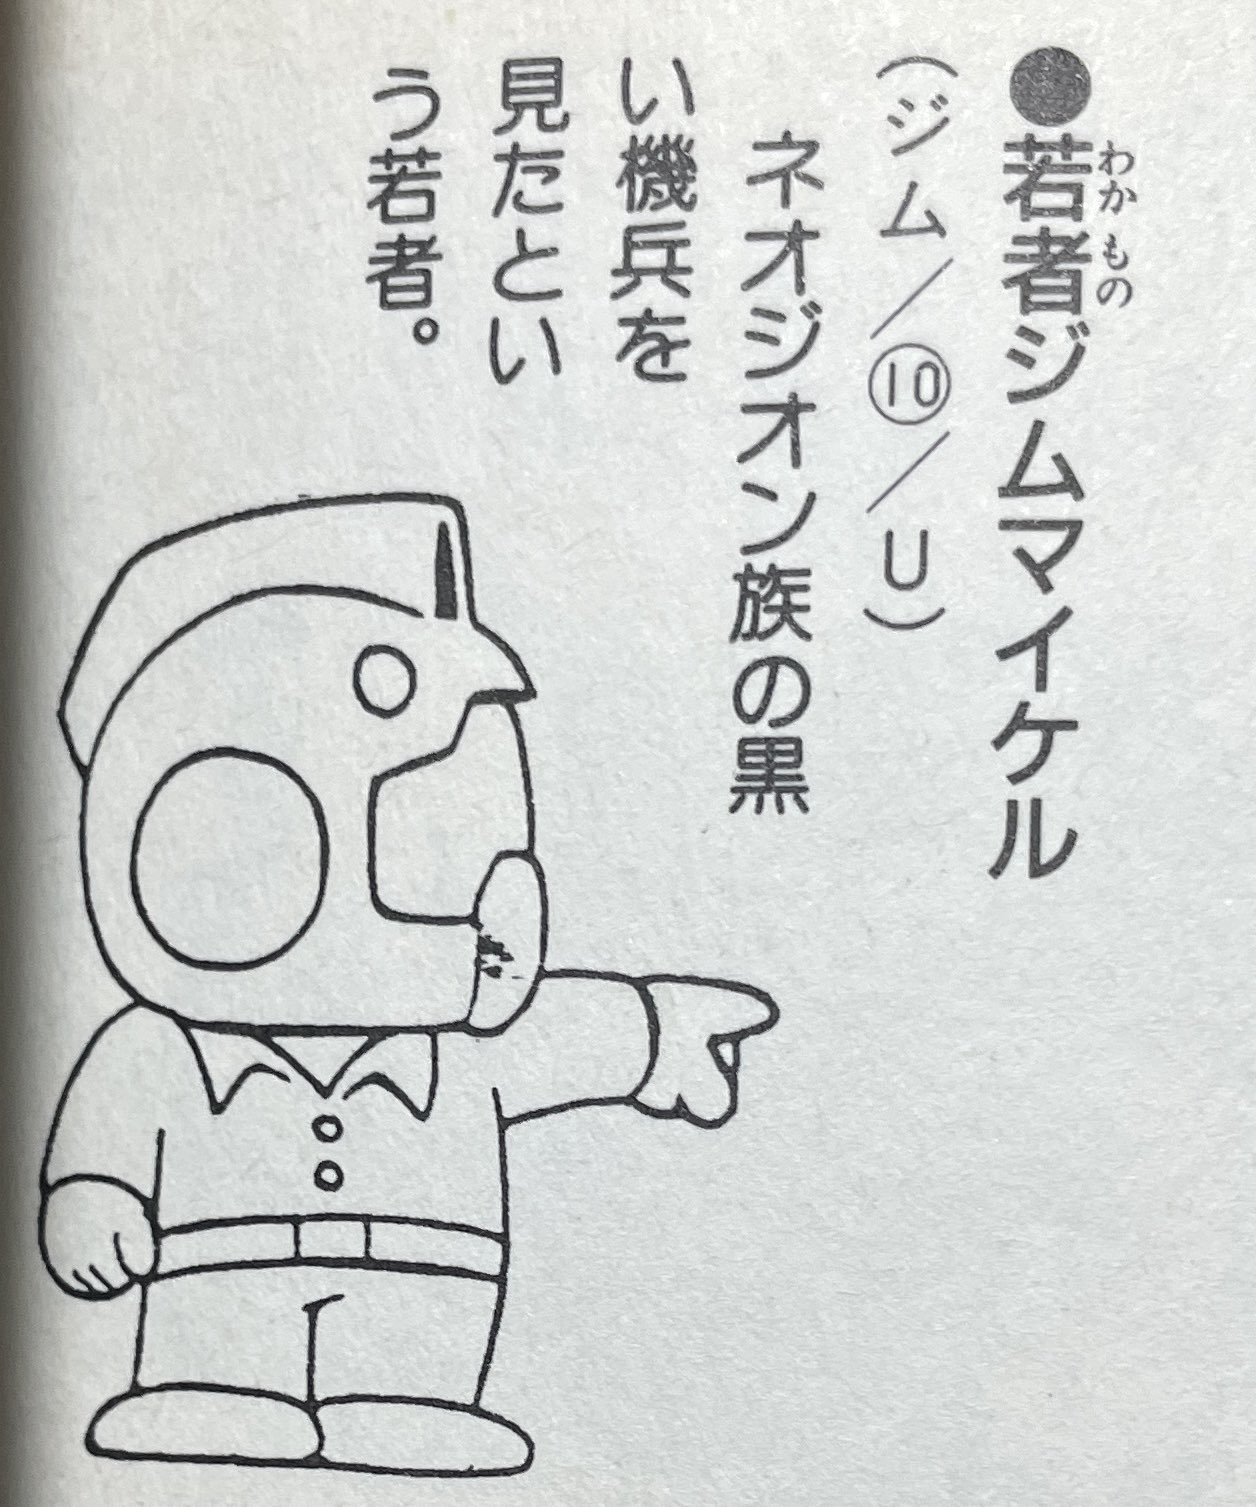 ●若者ジムマイケル
わかもの
(ジム/⑩/U)
ネオジオン族の黒
い機兵を
見たとい
う若者。